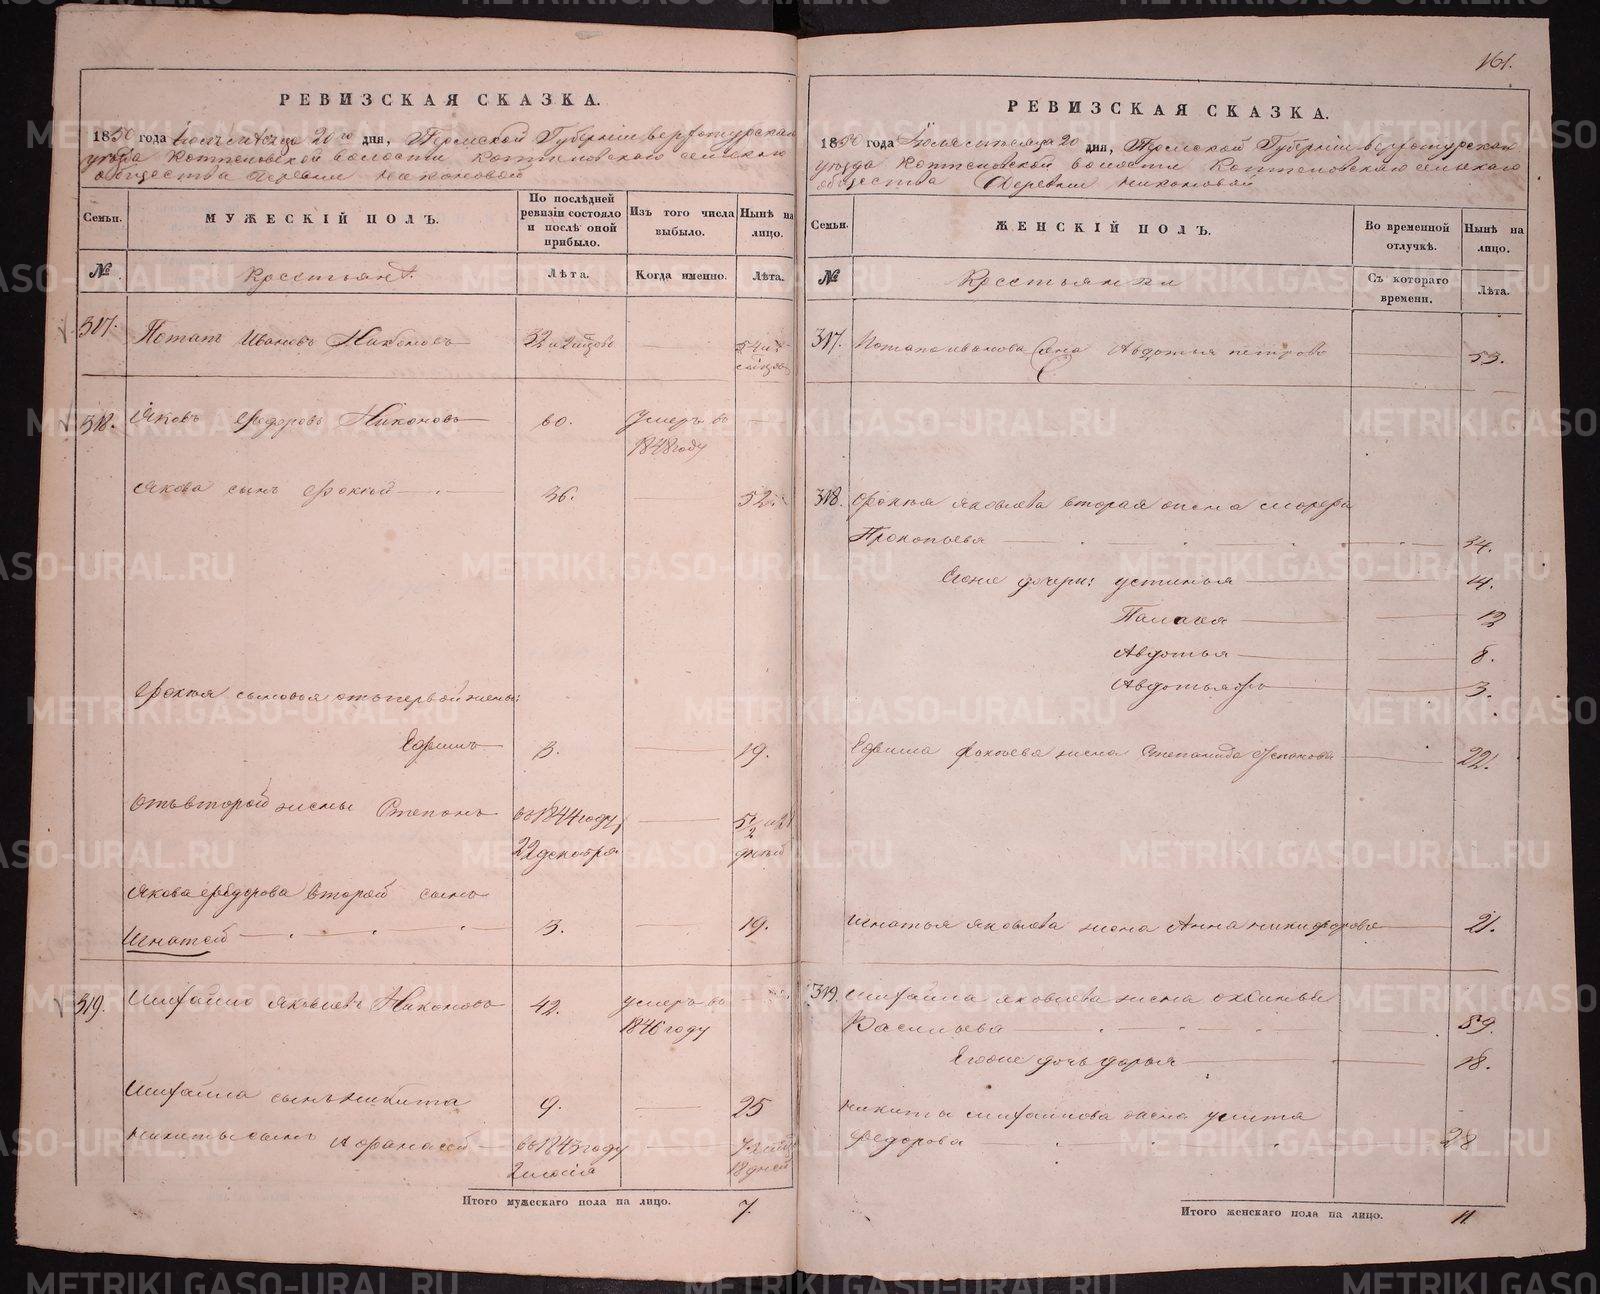 РЕВИЗСКАЯ СКАЗКА.
1850 года дня, Пермской Губерніи Верхотурскаго
уѣзда Коптеловской волости Коптеловскаго сельскаго
общества Деревни Никоновой
Семьи. МУЖЕСКІЙ ПОЛЪ. По послѣдней ревизіи состояло и послѣ оной прибыло. Изъ того числа выбыло. Нынѣ на лицо.
№ Крестьянъ. Лѣта. Когда именно. Лѣта.
317. Потапъ Ивановъ Никоновъ
318. Яковъ Федоровъ Никоновъ 60. Умеръ въ
1848 году
Якова сынъ Фокей 36. 52.
Фокея сыновья отъ первой жены:
Ефимъ 3. 19.
Отъ второй жены Степанъ въ 1844 году
22 декабря дней
Якова Федорова второй сынъ
Игнатей 3. 19.
319. Михайло Яковлевъ Никоновъ 42. умеръ въ
1846 году
Михайла сынъ Никита 9. 25
Никиты сынъ Афанасей въ 1843 году
18 дней
Итого мужескаго пола на лицо. 7.
161.
РЕВИЗСКАЯ СКАЗКА.
1850 года дня, Пермской Губерніи Верхотурскаго
уѣзда Коптеловской волости Коптеловскаго сельскаго
общества Деревни Никоновой
Семьи. ЖЕНСКІЙ ПОЛЪ. Во временной отлучкѣ. Нынѣ на лицо.
№ Крестьянки Съ котораго времени. Лѣта.
317. Потапа Иванова жена Авдотья Петрова 53.
318. Фокея Яковлева вторая жена
Прокопьева 34.
Егоже дочери: Устинья 14.
Палагея 12
Авдотья 8.
Авдотья 3.
Ефима Фокеева жена Степанида 22.
Игнатья Яковлева жена Анна Никифорова 21.
319. Михайла Яковлева жена
Васильева 59.
Егоже дочь Дарья 18.
Никиты Михайлова жена Улита
Федорова 28
Итого женскаго пола на лицо. 11.
METRIKI.GASO-URAL.RU